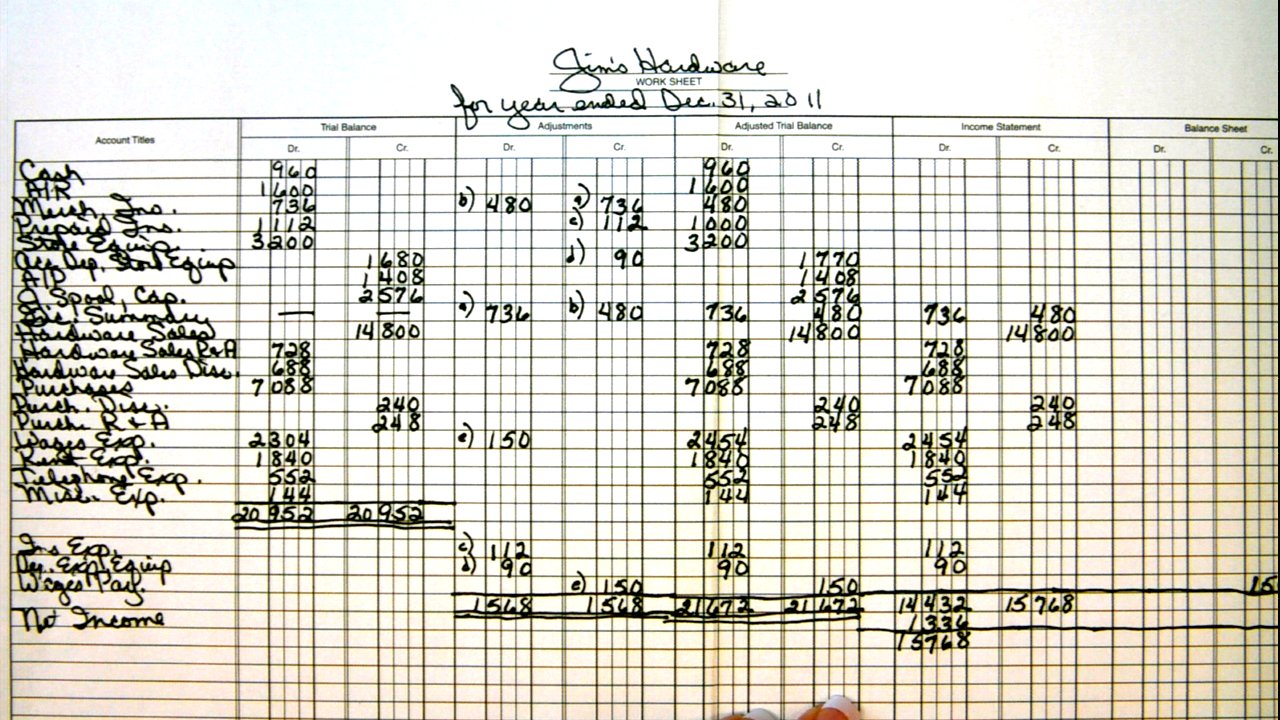 Jim's Hardware
WORK SHEET
for year ended Dec. 31, 2011
Account Titles Trial Balance Adjustments Adjusted Trial Balance Income Statement Balance Sheet
Dr. Cr. Dr. Cr. Dr. Cr. Dr. Cr. Dr. Cr.
Cash 960 960
A/R 1600 1600
Merch. Inv. 736 b) 480 a) 736 480
Prepaid Ins. 1112 c) 112 1000
Store Equip. 3200 3200
Acc. Dep. Store Equip 1680 d) 90 1770
A/P 1408 1408
J. Spool, Cap. 2576 2576
Inc. Summary — — a) 736 b) 480 736 480 736 480
Hardware Sales 14800 14800 14800
Hardware Sales R+A 728 728 728
Hardware Sales Disc. 688 688 688
Purchases 7088 7088 7088
Purch. Disc. 240 240 240
Purch. R+A 248 248 248
Wages Exp. 2304 e) 150 2454 2454
Rent Exp. 1840 1840 1840
Telephone Exp. 552 552 552
Misc. Exp. 144 144 144
20952 20952
Ins Exp. c) 112 112 112
Dep. Exp. Equip d) 90 90 90
Wages Pay. e) 150 150 15
1568 1568 21672 21672 14432 15768
Net Income 1336
15768